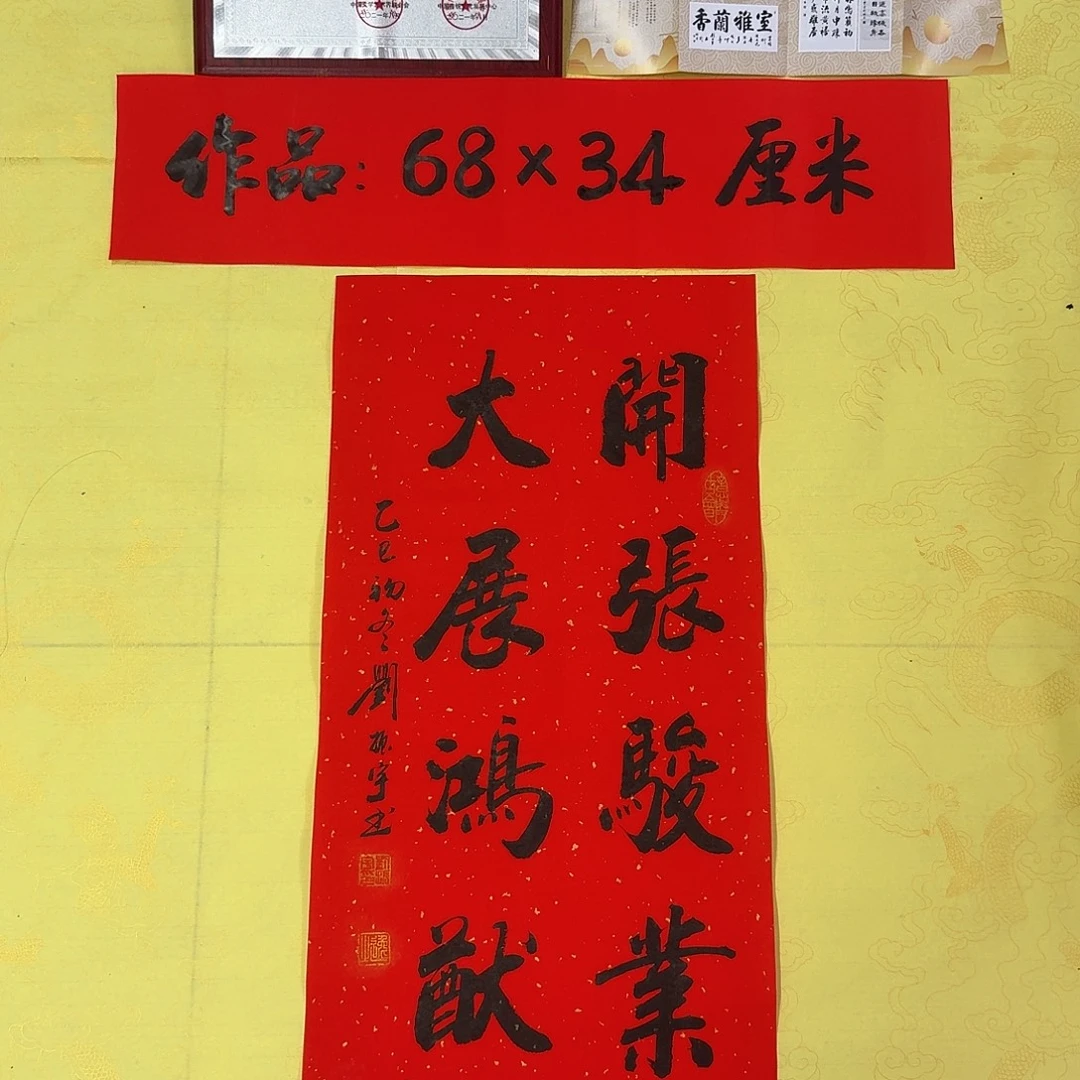 香蘭雅室
作品：68×34 厘米
開張駿業
大展鴻猷
乙巳初冬劉振宇书